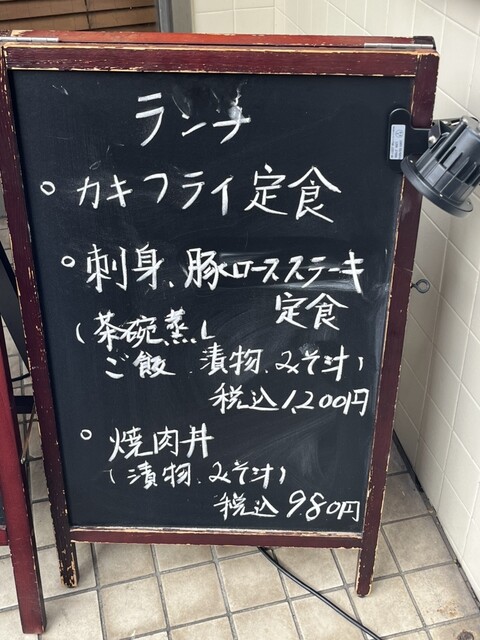 ランチ
○ カキフライ定食
○ 刺身、豚ロースステーキ
定食
(茶碗蒸し
ご飯 漬物、みそ汁)
税込1,200円
○ 焼肉丼
(漬物、みそ汁)
税込980円